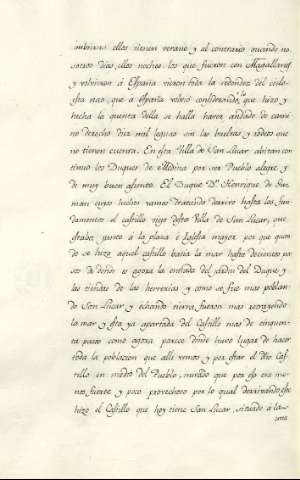 imbierno ellos tienen verano y al contrario cuando no-
sotros dias ellos noche. los que fueron con Magallanes
y volvieron á España vieron toda la redondez del cielo
esta nao, que á España volvió considerando, que hizo y
hecha la quenta della se halla haver andado de cami-
no derecho diez mil leguas sin las bueltas y rodeos que
no tienen cuenta. En esta Villa de San Lucar abitan con
tinuo los Duques de Medina por ser Pueblo alegre y
de muy buen asiento. El Duque Dn. Henrique de Guz
man cuyos hechos vamos tratando derrivó hasta los fun-
damentos el castillo viejo desta Villa de San Lucar, que
estaba junto á la plaza é Iglesia mayor por que quan
do se hizo aquel castillo batia la mar hasta decientos pa
sos de donde es agora la entrada del jardin del Duque y
las tiendas de las herrerias y como se fue mas poblan-
do San Lucar y echando tierra fueron mas retrayendo
la mar y esta ya apartada del Castillo mas de cinquen-
ta pasos como agora parece donde huvo lugar de hacer
toda la poblacion que alli vemos y por estar el dho Cas-
tillo en medio del Pueblo, mirado que por eso era me-
nos fuerte y poco provechoso por lo qual derrivandose
hizo el Castillo que hoy tiene San Lucar, situado á la